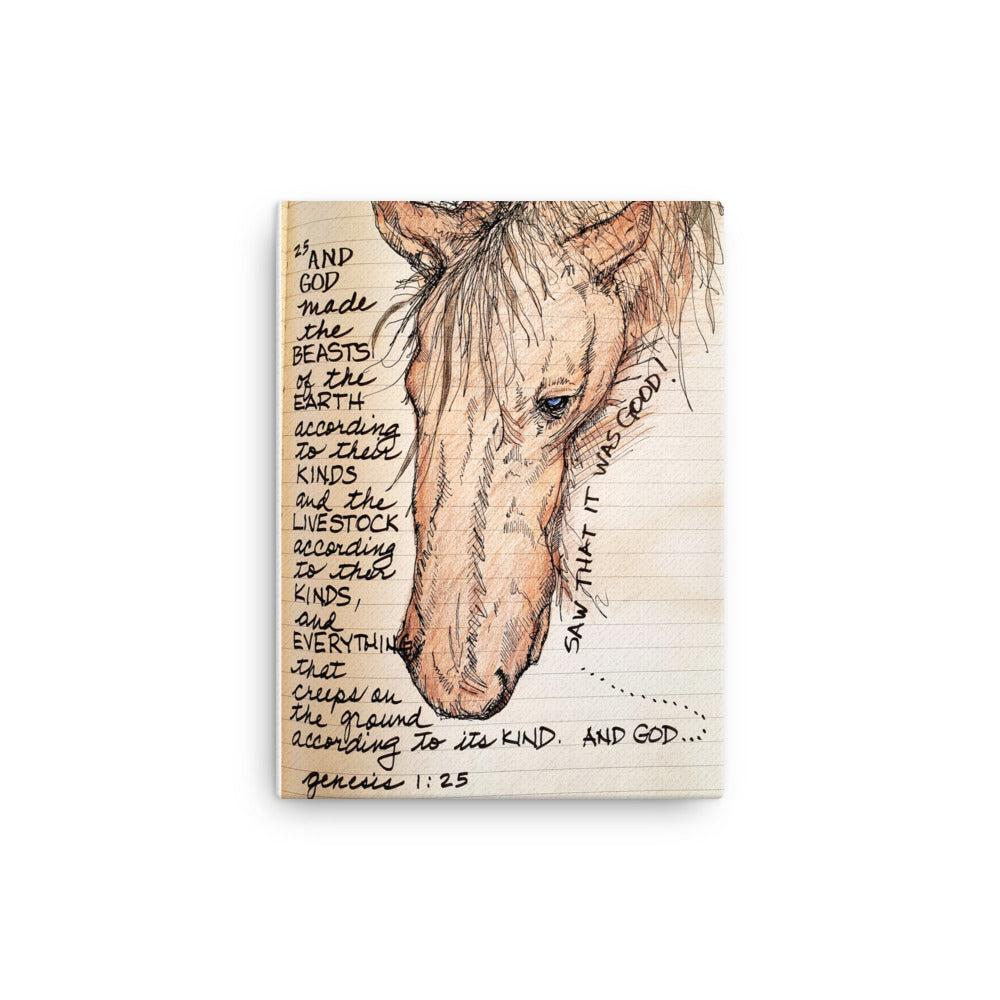 25 AND
GOD
made
the
BEASTS
of the
EARTH
according
to their
KINDS
and the
LIVESTOCK
according
to their
KINDS,
and
EVERYTHING
that
creeps on
the ground
according to its KIND. AND GOD...
SAW THAT IT WAS GOOD!
genesis 1:25